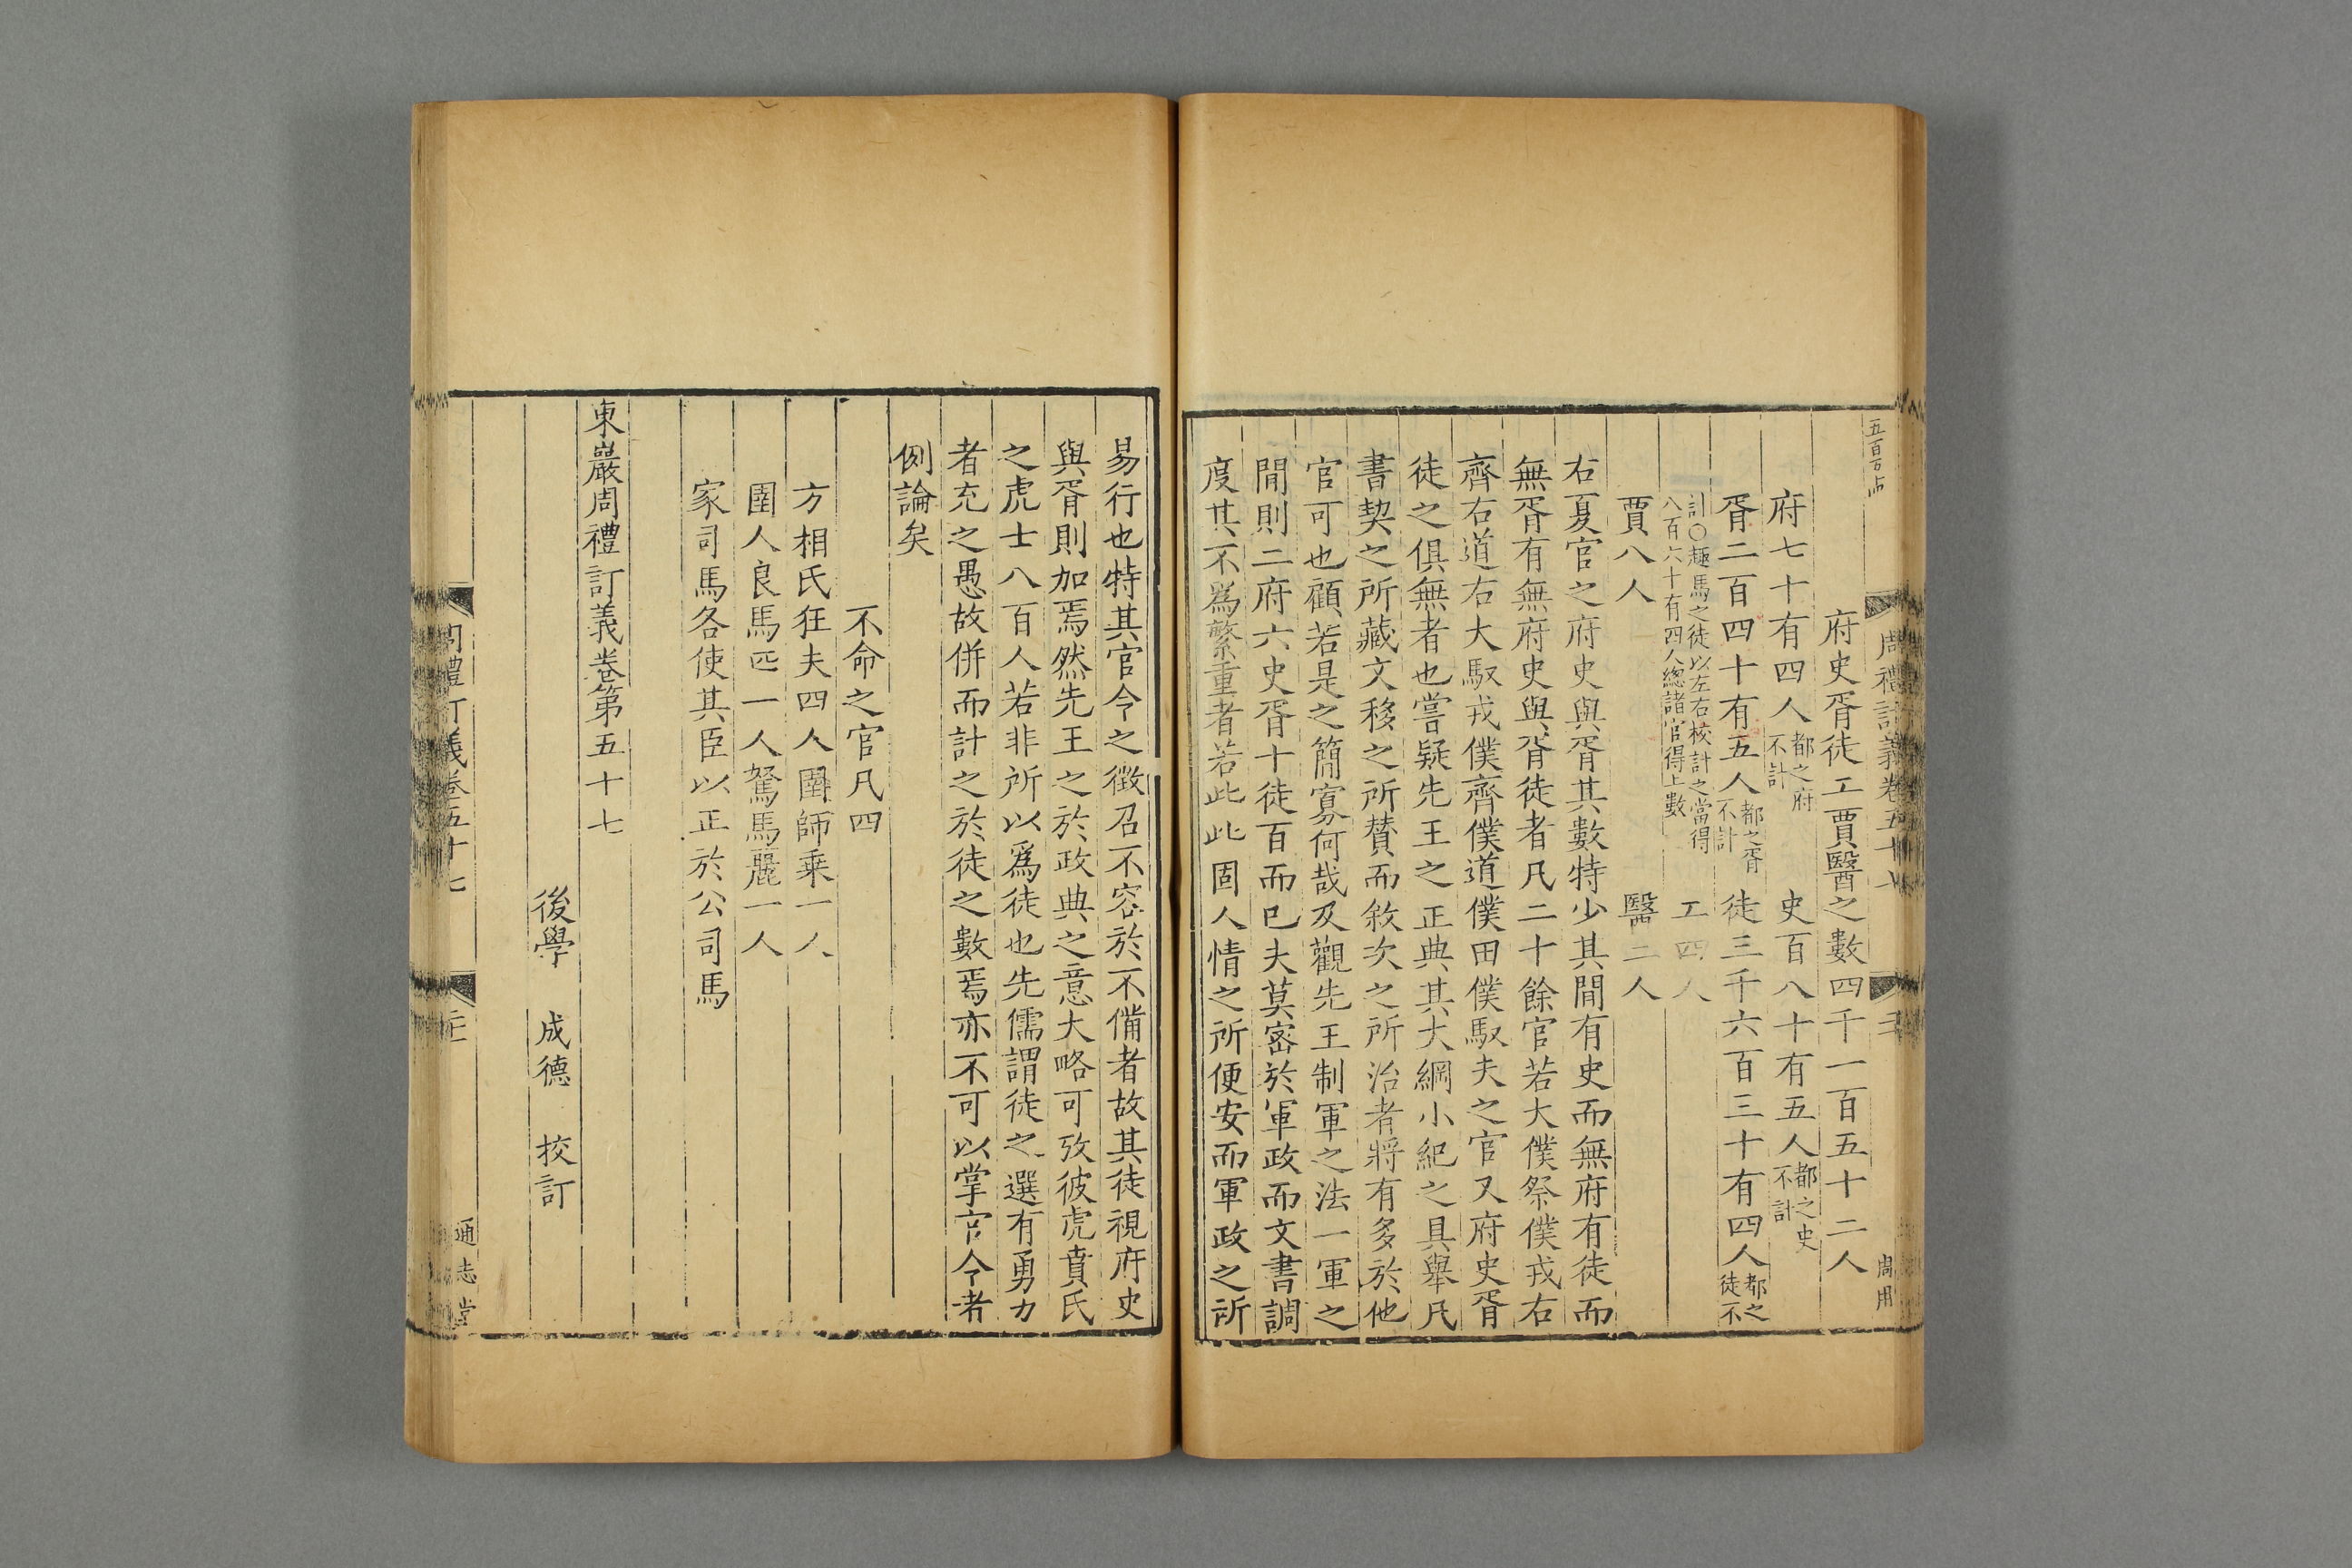 五百万占
周禮訂義卷五十七
周用
府史胥徒工賈醫之數四千一百五十二人
府七十有四人都之府不計 史百八十有五人都之史不計
胥二百四十有五人都之胥不計 徒三千六百三十有四人都之徒不
計○趣馬之徒以左右校計之當得八百六十有四人總諸官得上數 工四人
賈八人 醫二人
右夏官之府史與胥其數特少其閒有史而無府有徒而
無胥有無府史與胥徒者凡二十餘官若大僕祭僕戎右
齊右道右大馭戎僕齊僕道僕田僕馭夫之官又府史胥
徒之俱無者也嘗疑先王之正典其大綱小紀之具舉凡
書契之所藏文移之所贊而敘次之所治者將有多於他
官可也顧若是之簡寡何哉及觀先王制軍之法一軍之
閒則二府六史胥十徒百而已夫莫密於軍政而文書調
度其不爲繁重者若此此固人情之所便安而軍政之所
易行也特其官令之徵召不容於不備者故其徒視府史
與胥則加焉然先王之於政典之意大略可攷彼虎賁氏
之虎士八百人若非所以爲徒也先儒謂徒之選有勇力
者充之愚故併而計之於徒之數焉亦不可以掌官令者
例論矣
不命之官凡四
方相氏狂夫四人圉師乘一人
圉人良馬匹一人駑馬麗一人
家司馬各使其臣以正於公司馬
東巖周禮訂義卷第五十七
後學 成德 校訂
周禮訂義卷五十七
通志堂